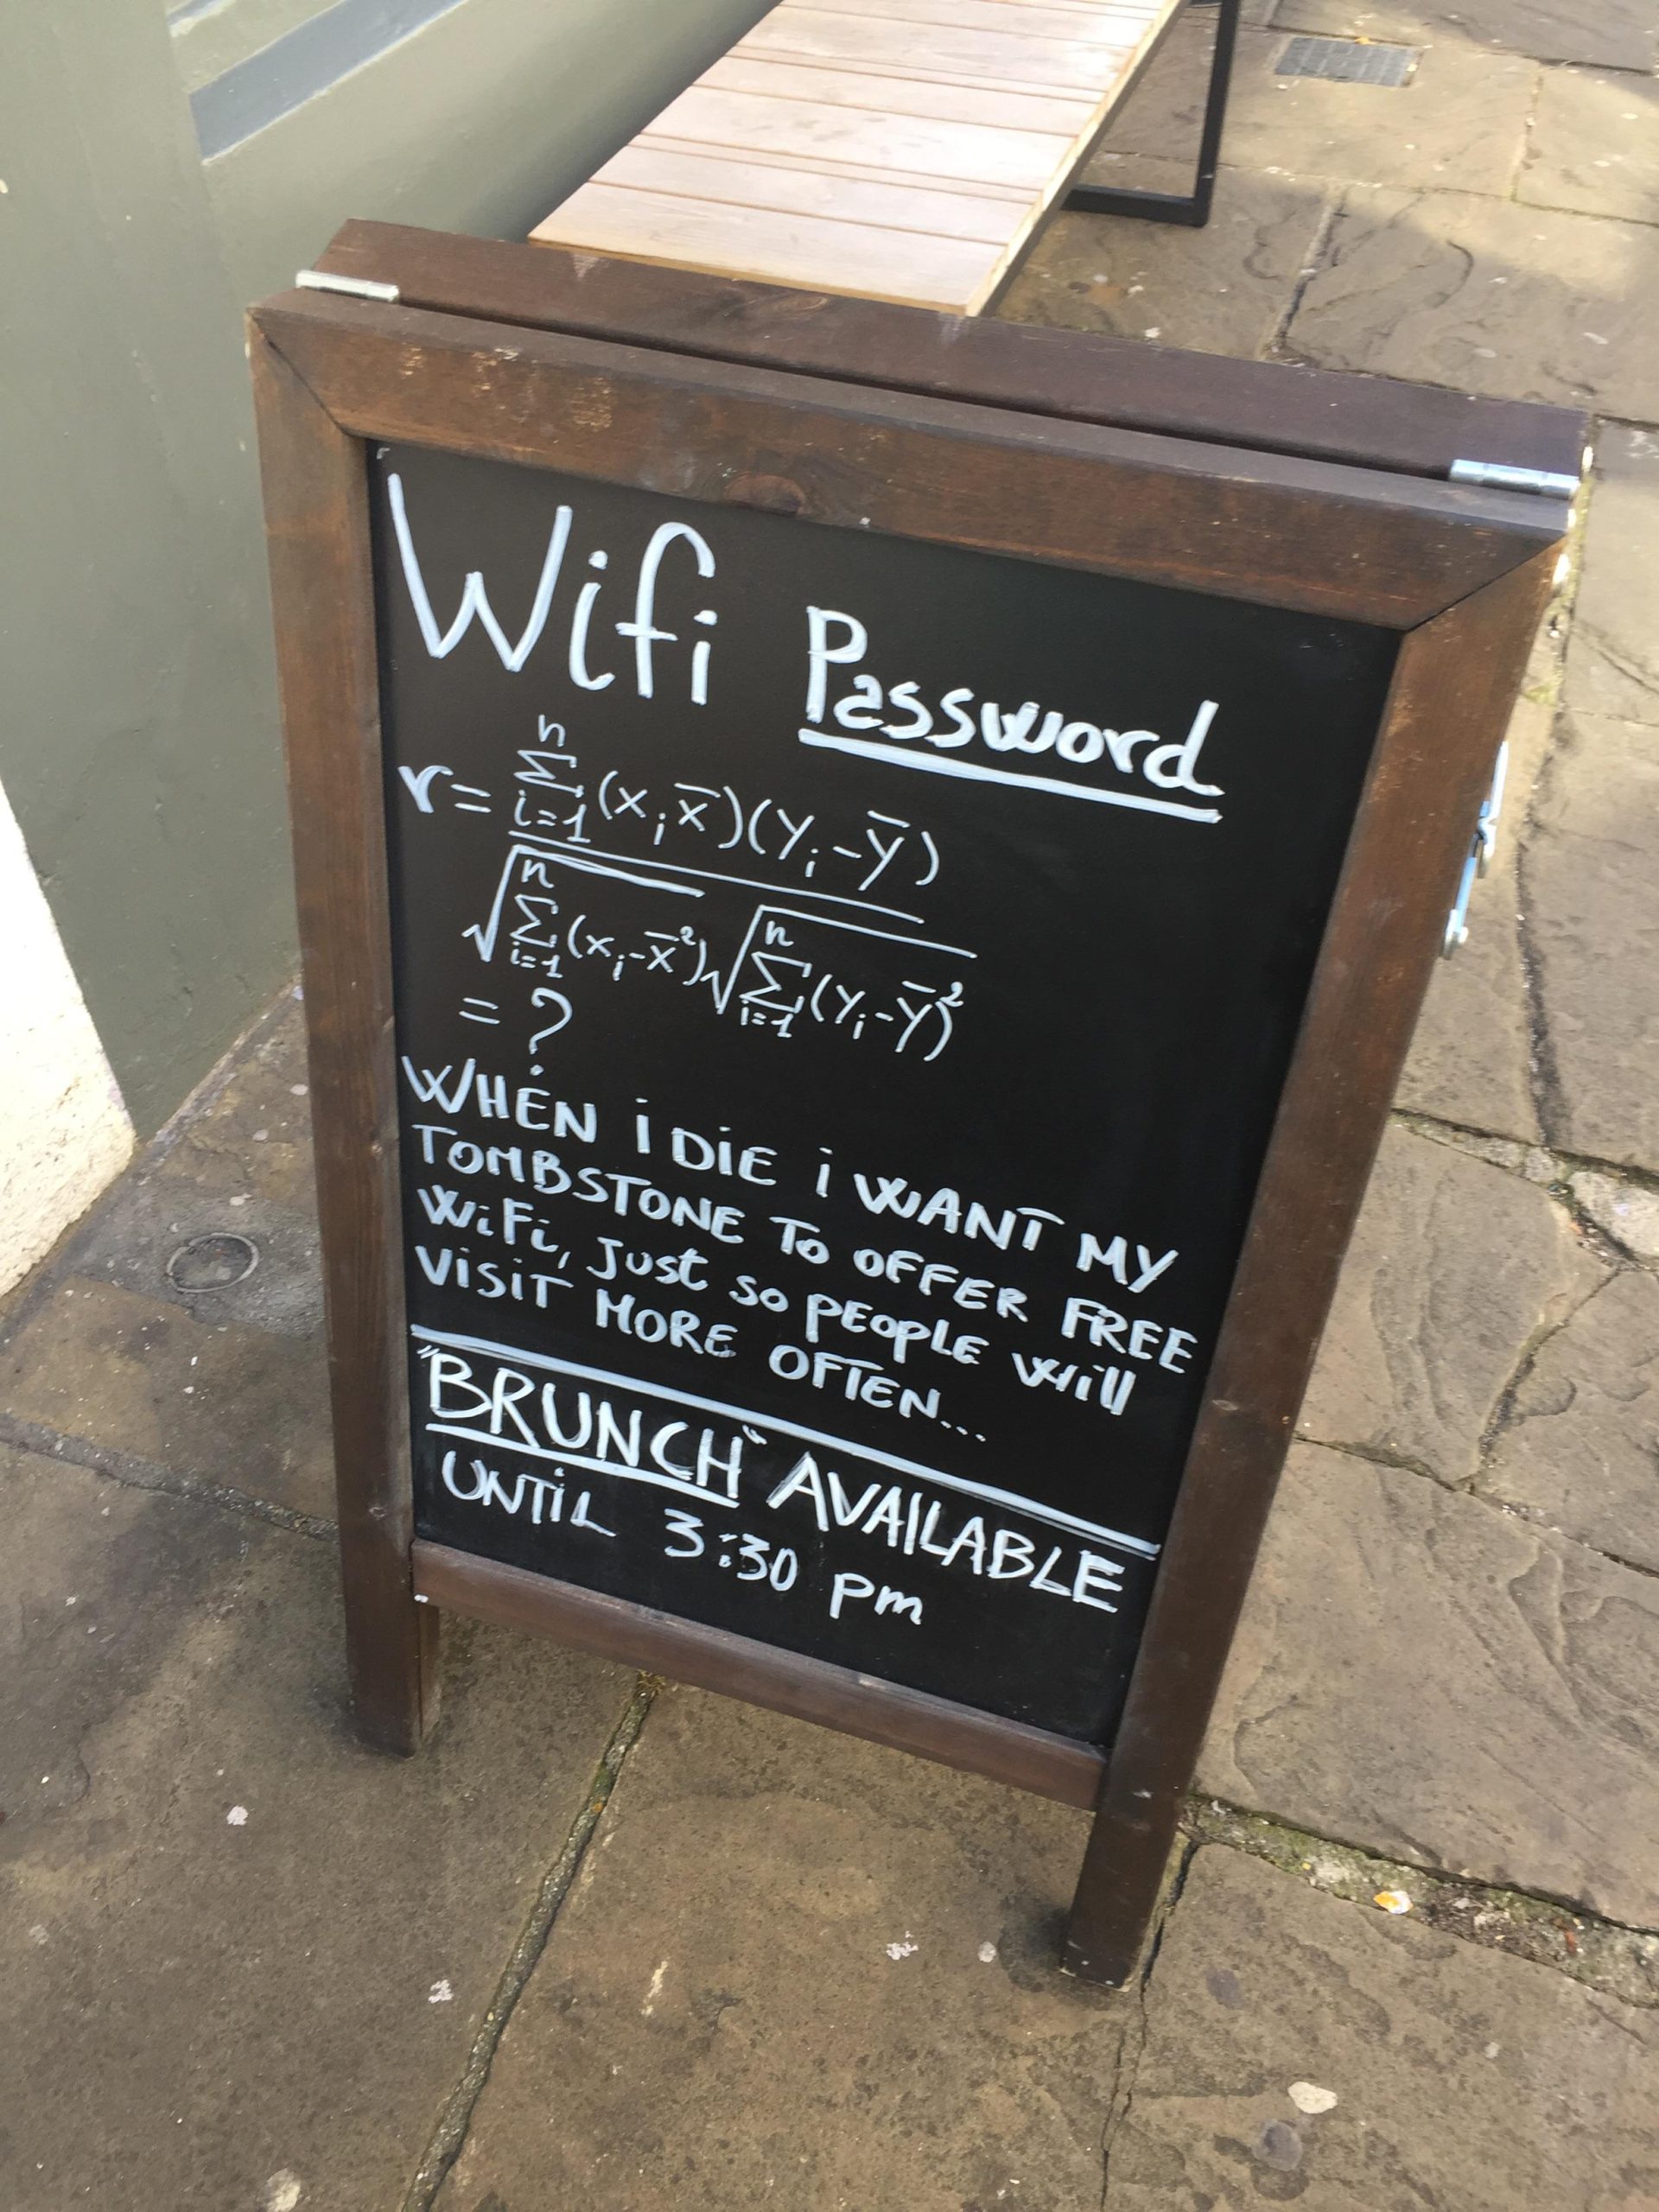 Wifi Password
r = n∑i=1 (xi x̄)(yi - ȳ)
√n∑i=1 (xi - x̄²) √n∑i=1 (yi - ȳ)²
= ?
WHEN i DiE i WANT MY
TOMBSTONE TO OFFER FREE
WiFi, JUST SO PEOPLE Will
ViSiT MORE OFTEN...
"BRUNCH" AVAILABLE
UNTiL 3:30 pm